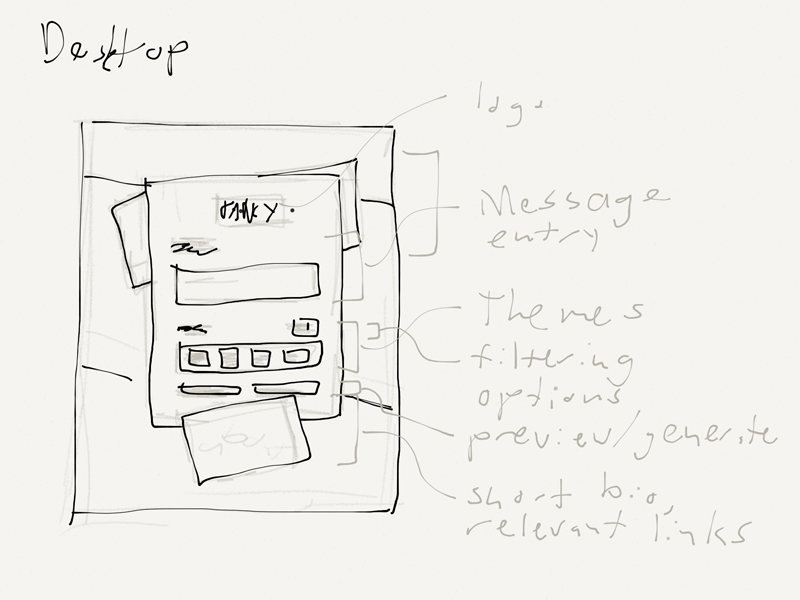 Desktop
logo
Message
entry
Themes
filtering
options
preview/generate
short bio,
relevant links